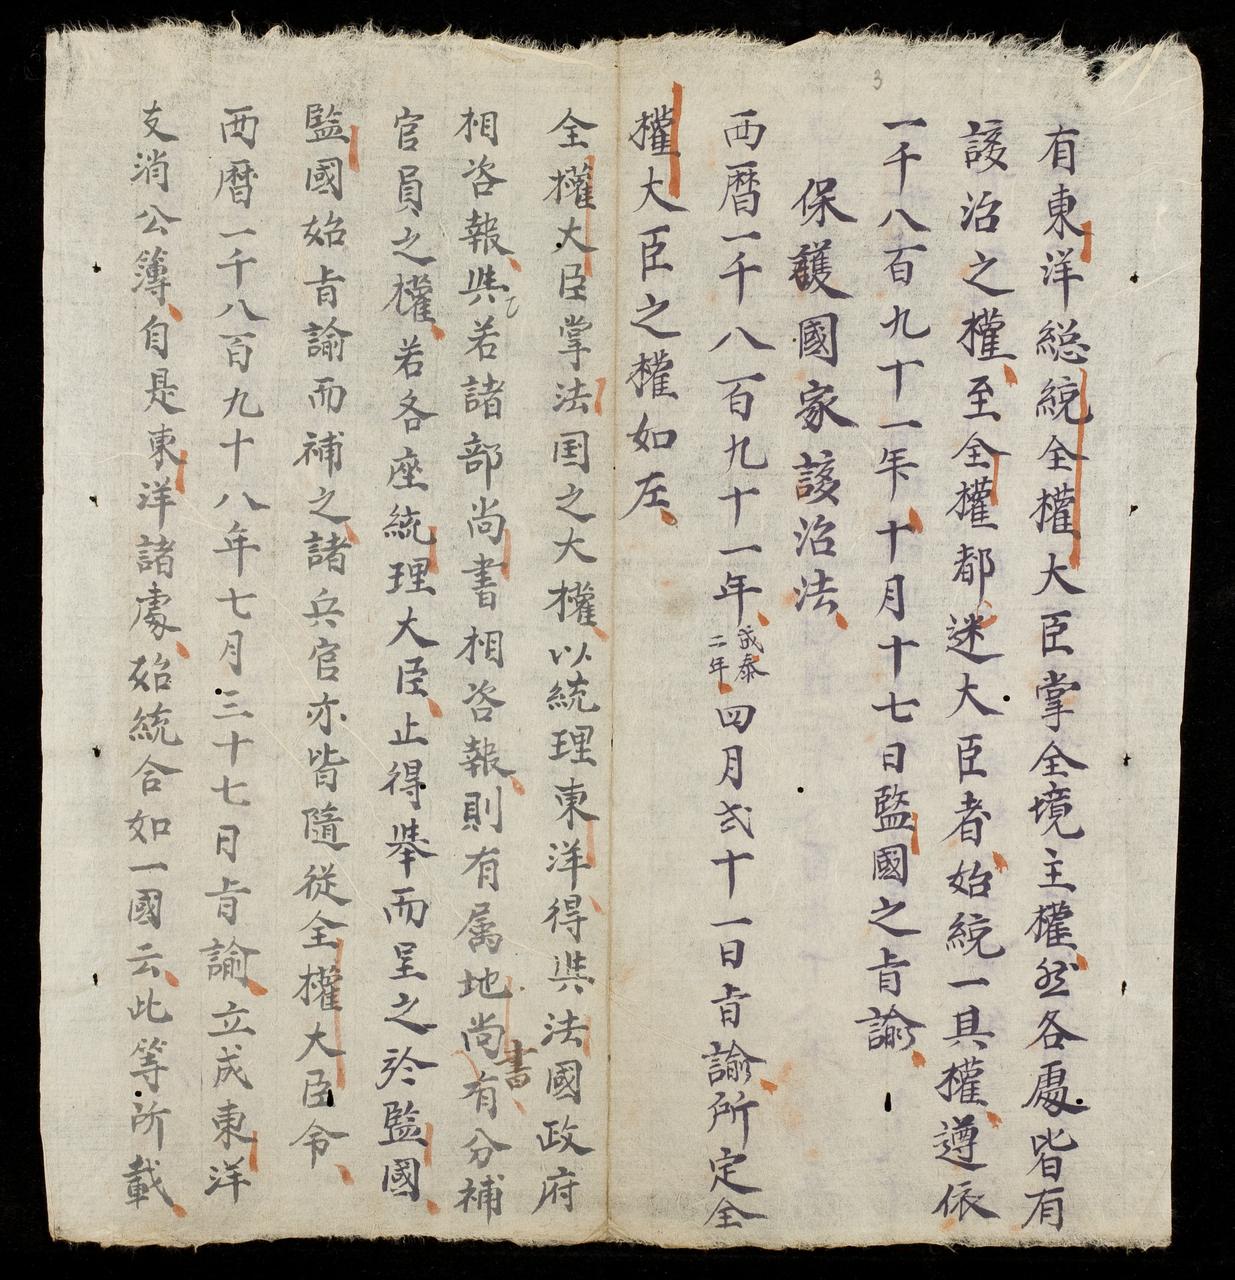 3
有東洋総統全權大臣掌全境主權然各處皆有
該治之權至全權都迷大臣者始統一具權遵依
一千八百九十一年十月十七日監國之旨諭
保護國家該治法
西曆一千八百九十一年成泰二年四月弍十一日旨諭所定全
權大臣之權如左
全權大臣掌法国之大權以統理東洋得與法國政府
相咨報與若諸部尚書相咨報則有属地尚書有分補
官員之權若各座統理大臣止得舉而呈之於監國
監國始旨諭而補之諸兵官亦皆隨從全權大臣令
西曆一千八百九十八年七月三十七日旨諭立成東洋
支消公簿自是東洋諸處始統合如一國云此等所載